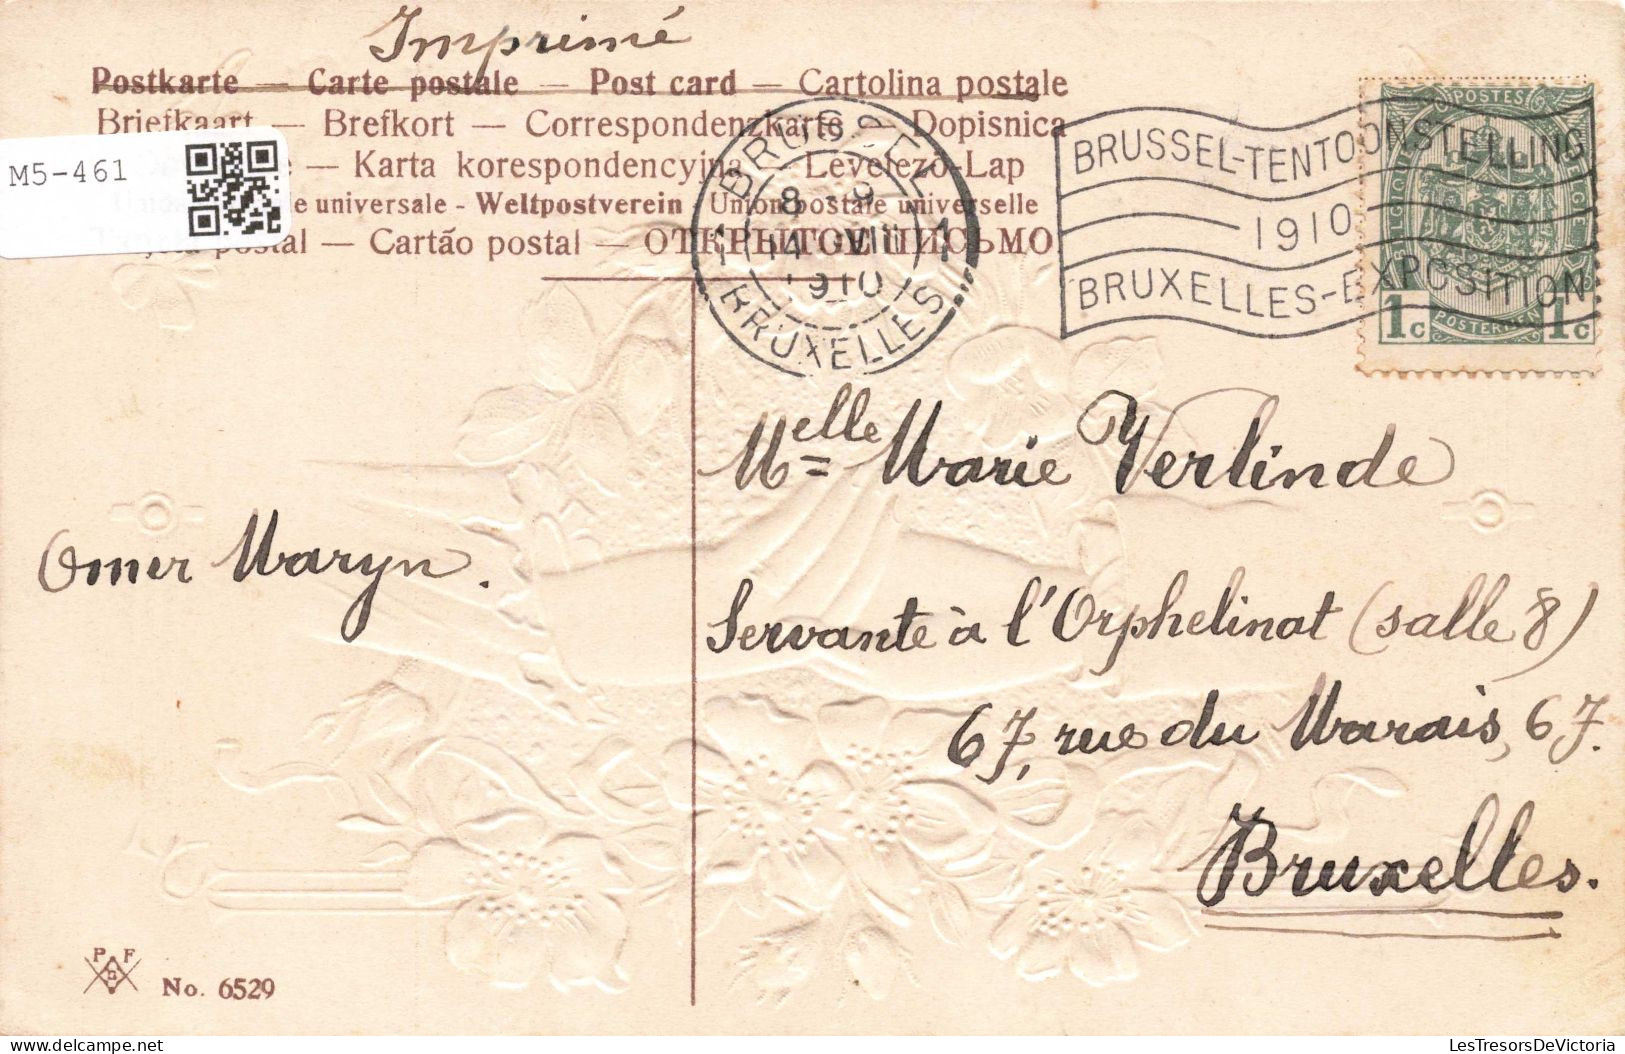 Imprimé
Postkarte — Carte postale — Post card — Cartolina postale
Briefkaart — Brefkort — Correspondenzkarte — Dopisnica
e — Karta korespondencyjna — Levelező-Lap
le universale - Weltpostverein - Union postale universelle
postal — Cartão postal — ОТКРЫТОЕ ПИСЬМО
M5-461
BRUSSEL
1 8-9 1
14 VIII
1910
BRUXELLES
BRUSSEL-TENTOONSTELLING
1910
BRUXELLES-EXPOSITION
POSTES
1c POSTERIJEN 1c
Melle Marie Verlinde
Omer Maryn.
Servante à l'Orphelinat (salle 8)
67, rue du Marais, 67.
Bruxelles.
P F
S
No. 6529
LesTresorsDeVictoria